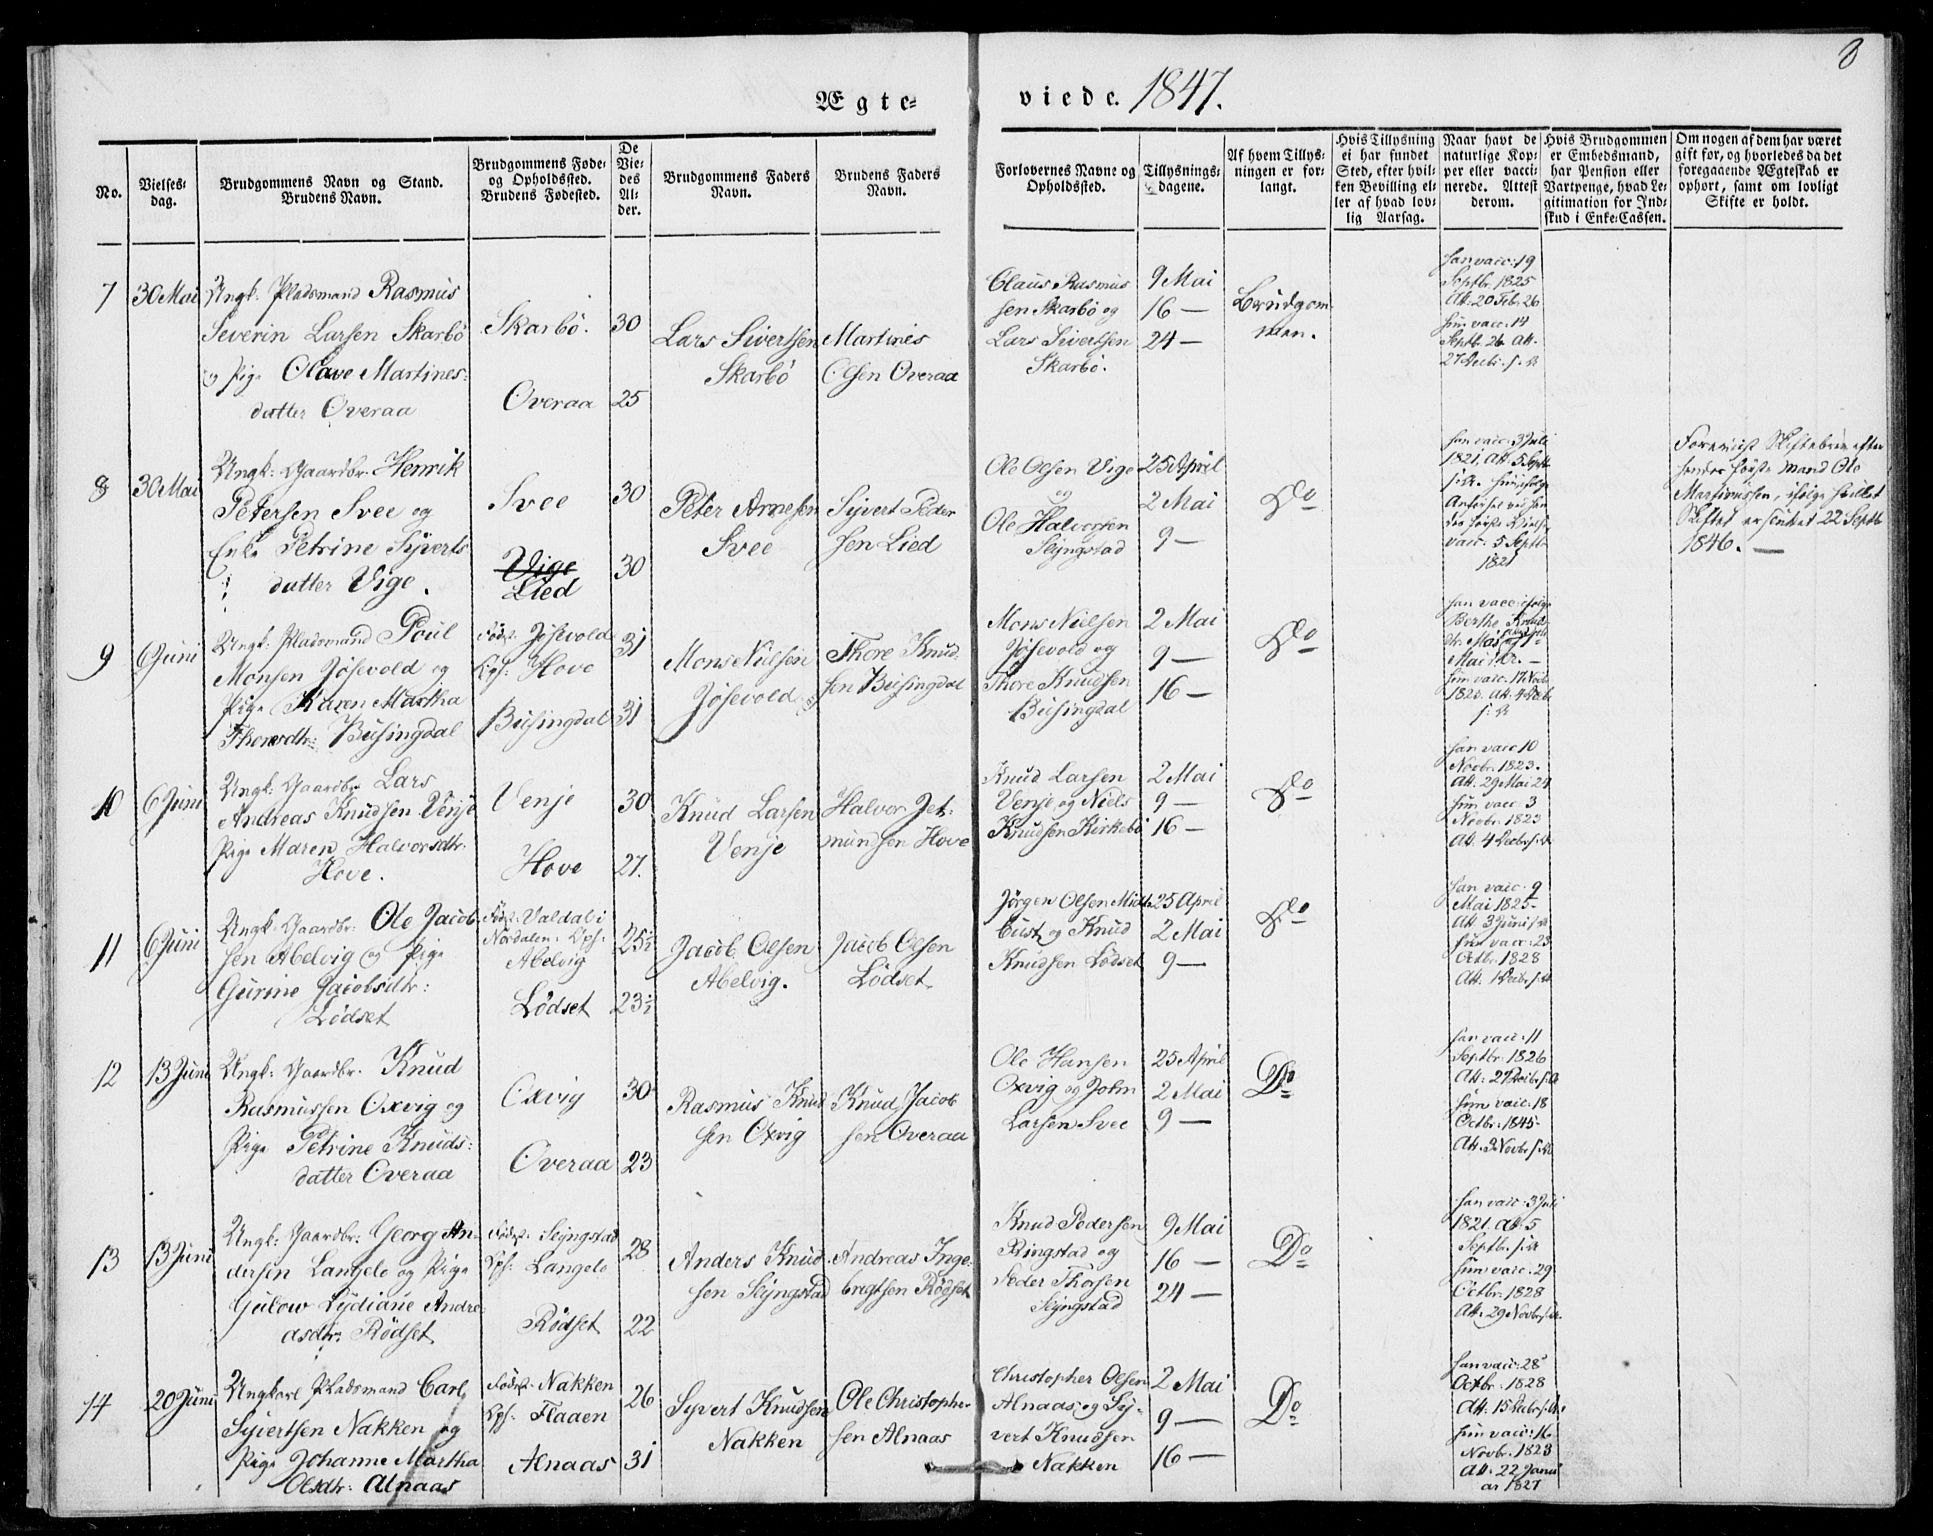 8
Ægte-
viede. 1847.
No.
Vielses-
dag.
Brudgommens Navn og Stand.
Brudens Navn.
Brudgommens Føde-
og Opholdssted.
Brudens Fødested.
De
Vie-
des
Al-
der.
Brudgommens Faders
Navn.
Brudens Faders
Navn.
Forlovernes Navne og
Opholdssted.
Tillysnings-
dagene.
Af hvem Tillys-
ningen er for-
langt.
Hvis Tillysning
ei har fundet
Sted, efter hvil-
ken Bevilling el-
ler af hvad lov-
lig Aarsag.
Naar havt de
naturlige Kop-
per eller vacci-
nerede. Attest
derom.
Hvis Brudgommen
er Embedsmand,
har Pension eller
Vartpenge, hvad Le-
gitimation for Ind-
skud i Enke-Cassen.
Om nogen af dem har været
gift før, og hvorledes da det
foregaaende Ægteskab er
ophørt, samt om lovligt
Skifte er holdt.
7
30 Mai
Ungk: Pladsmand Rasmus
Severin Larsen Skarbö
og Pige Olave Martines-
datter Overaa
Skarbö.
Overaa
30
25
Lars Sivertsen
Skarbö
Martinus
Olsen Overaa
Claus Rasmus
sen Skarbö og
Lars Sivertsen
Skarbö.
9 Mai
16 —
24 —
Brudgom
men.
han vacc: 19
Septbr. 1825
Att. 20 Feb. 26
hun vacc. 14
Septb. 26 Att.
27 Decbr. s. A
8
30 Mai
Ungk: Gaardbr. Henrik
Petersen Svee og
Enke Petrine Syverts
datter Vige.
Svee
Vige
Lied
30
30
Peter Arnesen
Svee
Syvert Peder
sen Lied
Ole Olsen Vige
og
Ole Halvorsen
Slyngstad
25 April
2 Mai
9 —
Do
han vacc: 3 Juli
1821, Att. 5 Septb
s. A. hun ifølge
vacc: 5 Septb
1821
Foreviist Skiftebrev efter
hendes første Mand Ole
Martinussen, ifølge hvilket
Skiftet er sluttet 22 Septb
1846. —
9
6 Juni
Ungk: Pladsmand Poul
Monsen Jösevold og
Pige Karen Martha
Thoresdtr: Busingdal
Födst: Jösevold
Ops: Hove
Busingdal
31
31
Mons Nielsen
Jösevold
Thore Knud
sen Busingdal
Mons Nielsen
Jösevold og
Thore Knudsen
Busingdal
2 Mai
9 —
16 —
Do
han vacc: ifølge
Berthe Knud
hun vacc. 17 Novb
1823. Att. 4 Decb
s: A
10
6 Juni
Ungk: Gaardbr. Lars
Andreas Knudsen Venje
Pige Maren Halvorsdtr.
Hove.
Venje
Hove
30
27.
Knud Larsen
Venje
Halvor Jet-
mundsen Hove
Knud Larsen
Venje og Niels
Knudsen Kirkebö
2 Mai
9 —
16 —
Do
han vacc 10
Novbr. 1823.
Att. 29 Mai 24
hun vacc: 3
Novbr. 1823
Att. 4 Decbr. s: A
11
6 Juni
Ungk: Gaardbr: Ole Jacob-
sen Abelvig og Pige
Gurine Jacobsdtr:
Lödset
Födst: Valdal i
Nordalen. Ops:
Abelvig
Lödset
25½
23½
Jacob Olsen
Abelvig.
Jacob Olsen
Lödset
Jörgen Olsen Midt-
bust og Knud
Knudsen Lödset
25 April
2 Mai
9 —
Do
han vacc: 9
Mai 1825-
Att 3 Juni s: A
hun vacc: 23
Octbr. 1828
Att. 1 Decbr. s: A
12
13 Juni
Ungk: Gaardbr. Knud
Rasmussen Oxvig og
Pige Petrine Knuds-
datter Overaa
Oxvig
Overaa
30
23
Rasmus Knud
sen Oxvig
Knud Jacob
sen Overaa
Ole Hansen
Oxvig og John
Larsen Svee
25 April
2 Mai
9 —
Do
han vacc: 11
Septbr. 1826
Att. 27 Decbr. s. A
hun vacc: 18
Octbr: 1845-
Att. 3 Novbr s. A
13
13 Juni
Ungk: Gaardbr: Georg An-
dersen Langelo og Pige
Gulow Lydiane Andre-
asdtr: Rödset
Födst: Slyngstad
Ops: Langelo
Rödset
28
22
Anders Knud
sen Slyngstad
Andreas Inge-
brigtsen Rödset
Knud Pedersen
Ringstad og
Peder Thorsen
Slyngstad
9 Mai
16 —
24 —
Do
han vacc: 3 Juli
1821. Att. 5
Septbr. s. A
hun vacc: 29
Octbr. 1828
Att. 29 Novbr. s. A.
14
20 Juni
Ungkarl Pladsmand Carl
Syvertsen Nakken og
Pige Johanne Martha
Olsdtr: Alnaas
Födst: Nakken
Ops: Flaaen
Alnaas
26
31
Syvert Knudsen
Nakken
Ole Christopher
sen Alnaas
Christopher Olsen
Alnaas og Sy-
vert Knudsen
Nakken
2 Mai
9 —
16 —
Do
han vacc: 28
Octbr. 1828
Att. 15 Decbr. s. A.
hun vacc: 16
Novbr. 1823
Att: 22 Janu
ar 1827